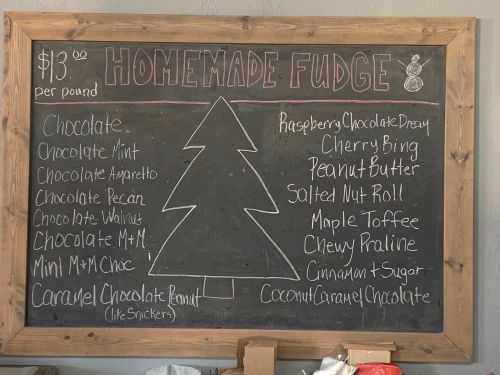 $13.00
per pound
HOMEMADE FUDGE
Chocolate
Chocolate Mint
Chocolate Amaretto
Chocolate Pecan
Chocolate Walnut
Chocolate M+M
Mini M+M Choc
Caramel Chocolate Peanut
(like Snickers)
Raspberry Chocolate Dream
Cherry Bing
Peanut Butter
Salted Nut Roll
Maple Toffee
Chewy Praline
Cinnamon + Sugar
Coconut Caramel Chocolate